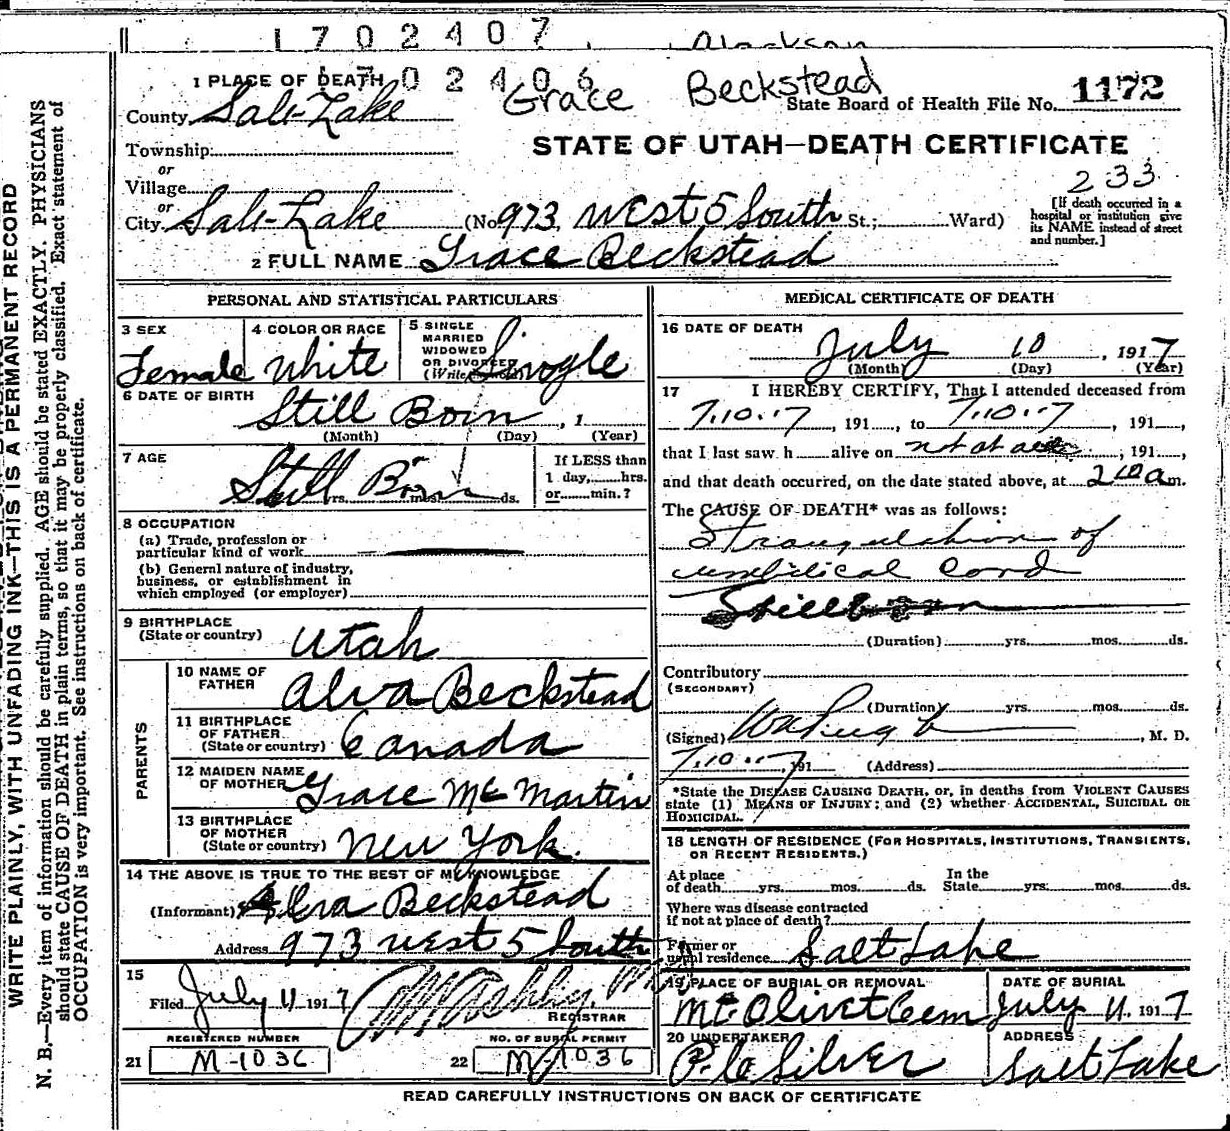 1702407
1702406
Grace Beckstead
1 PLACE OF DEATH
County Salt Lake
State Board of Health File No. 1172
Township
STATE OF UTAH—DEATH CERTIFICATE
or
Village
233
or
City. Salt Lake (No. 973 West 5 South St.; Ward)
[If death occurred in a
hospital or institution give
its NAME instead of street
and number.]
2 FULL NAME Grace Beckstead
PERSONAL AND STATISTICAL PARTICULARS
3 SEX
Female
4 COLOR OR RACE
White
5 SINGLE
MARRIED
WIDOWED
OR DIVORCED
(Write the word)
Single
6 DATE OF BIRTH
Still Born, 1
(Month) (Day) (Year)
7 AGE
Still Born
yrs. mos. ds.
If LESS than
1 day, hrs.
or min.?
8 OCCUPATION
(a) Trade, profession or
particular kind of work
(b) General nature of industry,
business, or establishment in
which employed (or employer)
9 BIRTHPLACE
(State or country) Utah
PARENTS
10 NAME OF
FATHER Alva Beckstead
11 BIRTHPLACE
OF FATHER
(State or country) Canada
12 MAIDEN NAME
OF MOTHER Grace McMartin
13 BIRTHPLACE
OF MOTHER
(State or country) New York.
14 THE ABOVE IS TRUE TO THE BEST OF MY KNOWLEDGE
(Informant) Alva Beckstead
Address 973 West 5 South
15
Filed July 11 1917
REGISTRAR
REGISTERED NUMBER
21 M-1036
NO. OF BURIAL PERMIT
22 M-1036
MEDICAL CERTIFICATE OF DEATH
16 DATE OF DEATH
July 10, 1917
(Month) (Day) (Year)
17 I HEREBY CERTIFY, That I attended deceased from
7.10.17, 191, to 7.10.17, 191,
that I last saw h alive on not at all, 191,
and that death occurred, on the date stated above, at 2 10 a m.
The CAUSE OF DEATH* was as follows:
Strangulation of
umbilical cord
Stillborn
(Duration) yrs. mos. ds.
Contributory
(SECONDARY)
(Duration) yrs. mos. ds.
(Signed), M. D.
7.10.17, 191 (Address)
*State the DISEASE CAUSING DEATH, or, in deaths from VIOLENT CAUSES
state (1) MEANS OF INJURY; and (2) whether ACCIDENTAL, SUICIDAL OR
HOMICIDAL.
18 LENGTH OF RESIDENCE (FOR HOSPITALS, INSTITUTIONS, TRANSIENTS,
OR RECENT RESIDENTS.)
At place
of death yrs. mos. ds.
In the
State yrs. mos. ds.
Where was disease contracted
if not at place of death?
Former or
usual residence Salt Lake
19 PLACE OF BURIAL OR REMOVAL
Mt Olivet Cem
DATE OF BURIAL
July 11. 1917
20 UNDERTAKER
Silver
ADDRESS
Salt Lake
READ CAREFULLY INSTRUCTIONS ON BACK OF CERTIFICATE
WRITE PLAINLY, WITH UNFADING INK—THIS IS A PERMANENT RECORD
N. B.—Every item of information should be carefully supplied. AGE should be stated EXACTLY. PHYSICIANS
should state CAUSE OF DEATH in plain terms, so that it may be properly classified. Exact statement of
OCCUPATION is very important. See instructions on back of certificate.